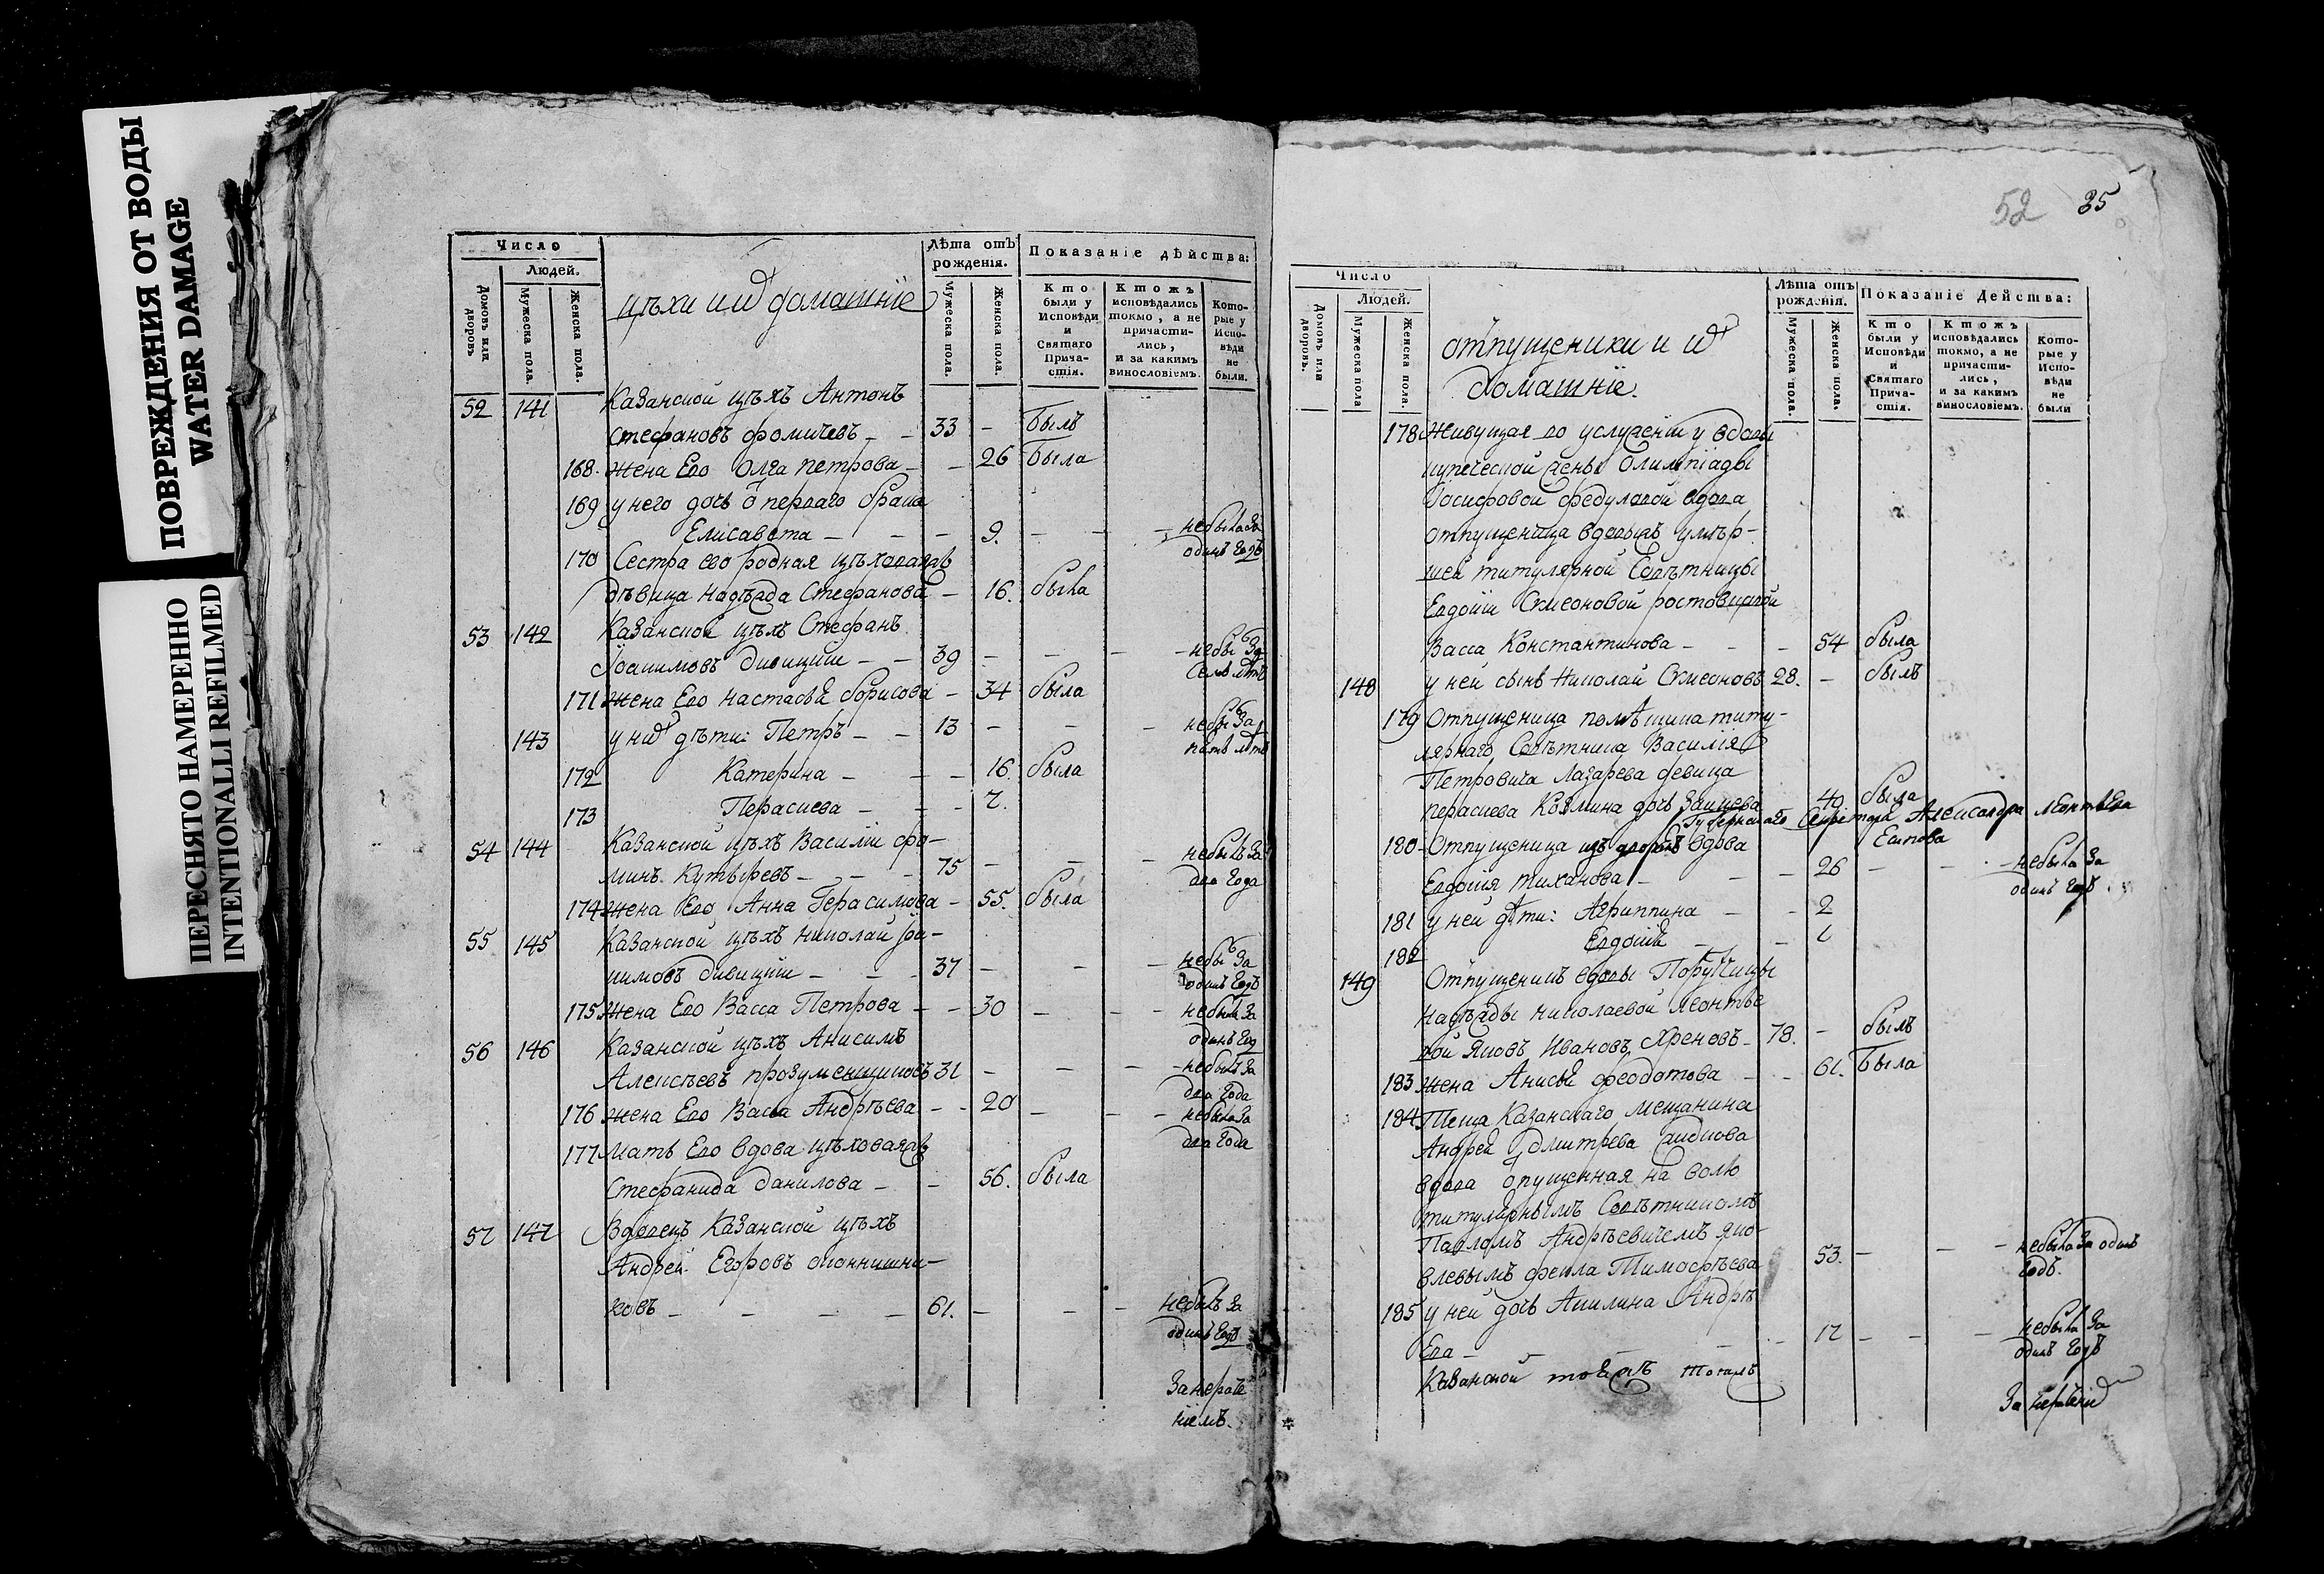 ПОВРЕЖДЕНИЯ ОТ ВОДЫ
WATER DAMAGE
ПЕРЕСНЯТО НАМЕРЕННО
INTENTIONALLI REFILMED
Число
Людей.
Домовъ или дворовъ
Мужеска пола.
Женска пола.
цѣхи и их домашніе
Лѣта отъ рожденія.
Мужеска пола.
Женска пола.
Показаніе дѣйства:
Кто были у Исповѣди и Святаго Прича-стія.
Ктожъ исповѣдались токмо, а не причасти-лись, и за какимъ винословіемъ.
Кото-рые у Испо-вѣди не были.
52 141 Казанской цѣхъ Антонъ
Стефановъ Фомичевъ – – 33 – Былъ
168. жена Его Олга Петрова – – 26 Была
169 у него дочь ѿ перваго брака
Елисавета – – – 9. – – – небыла за
одинъ годъ
170 Сестра его родная цѣховая
дѣвица Надѣжда Стефанова – 16. была
53 142 Казанской цѣхъ Стефанъ
Іоакимовъ – – 39 – – – небы за
семь лѣтъ
171 жена Его Настасья Борисова – 34 была
143 у них дѣти: Петръ – – 13 – – – небы за
пять лѣтъ
172 Катерина – – – 16. была
173 Параскева – – – 7.
54 144 Казанской цѣхъ Василій Фо-
минъ Кутыревъ – – – 75 – – – небылъ за
два года
174 жена Его Анна Герасимова – 55. была
55 145 Казанской цѣхъ Николай
кимовъ – – – 37 – – – небы за
одинъ годъ
175. жена Его Васса Петрова – – 30 – – – небыла за
одинъ год
56 146 Казанской цѣхъ Анисимъ
Алексѣевъ Прозуменщиковъ 31 – – – небылъ за
два года
176 жена Его Васса Андрѣева – – 20 – – – небыла за
два года
177 Мать Его вдова цѣховая
Стефанида Данилова – – 56. была
57 147 Вдовецъ Казанской цѣхъ
Андрей Егоровъ
ковъ – – – – 61. – – – небылъ за
одинъ годъ
За нераде
ніемъ.
52 35
Число
Людей.
Домовъ или дворовъ.
Мужеска пола
Женска пола.
отпущеники и их
домашніе.
Лѣта отъ рожденія.
Мужеска пола.
Женска пола.
Показаніе Действа:
Кто были у Исповѣди и Святаго Прича-стія.
Ктожъ исповѣдались токмо, а не причасти-лись, и за какимъ винословіемъ.
Кото-рые у Испо-вѣди не были
178 Живущая во услуженіи у вдовы
купеческой жены Олимпіады
Іосифовой Федуловой вдова
отпущеница умѣр-
шей титулярной Совѣтницы
Евдокіи Симеоновой
Васса Константинова – – – 54 была
148 у ней сынъ Николай Симеоновъ 28. – былъ
179 Отпущеница помѣщика титу-
лярнаго Совѣтника Василія
Петровича Лазарева девица
Параскева Козмина дочь Зайцева 40. была
Губернскаго Секретаря Александра Леонтьева
180 Отпущеница вдова Есипова
Евдокія Тиханова – – – 26 – – – небыла за
одинъ годъ
181 у ней дѣти: Агриппина – – 2
182 Евдокія – – 1
149 Отпущеникъ вдовы Порутчицы
Надѣжды Николаевой Леонтье
вой Яковъ Ивановъ Хреновъ – 78. – былъ
183 жена Анисья Феодотова – – 61. Была
184 Теща Казанскаго мещанина
Андрея Дмитрева
вдова опущенная на волю
титулярнымъ Совѣтникомъ
Павломъ Андрѣевичемъ Яко-
влевымъ Фекла Тимофѣева 53. – – – небыла за одинъ
годъ.
185 у ней дочь Акилина Андрѣ
Ева – – – – – 17 – – – небыла за
одинъ годъ
За нераденіе